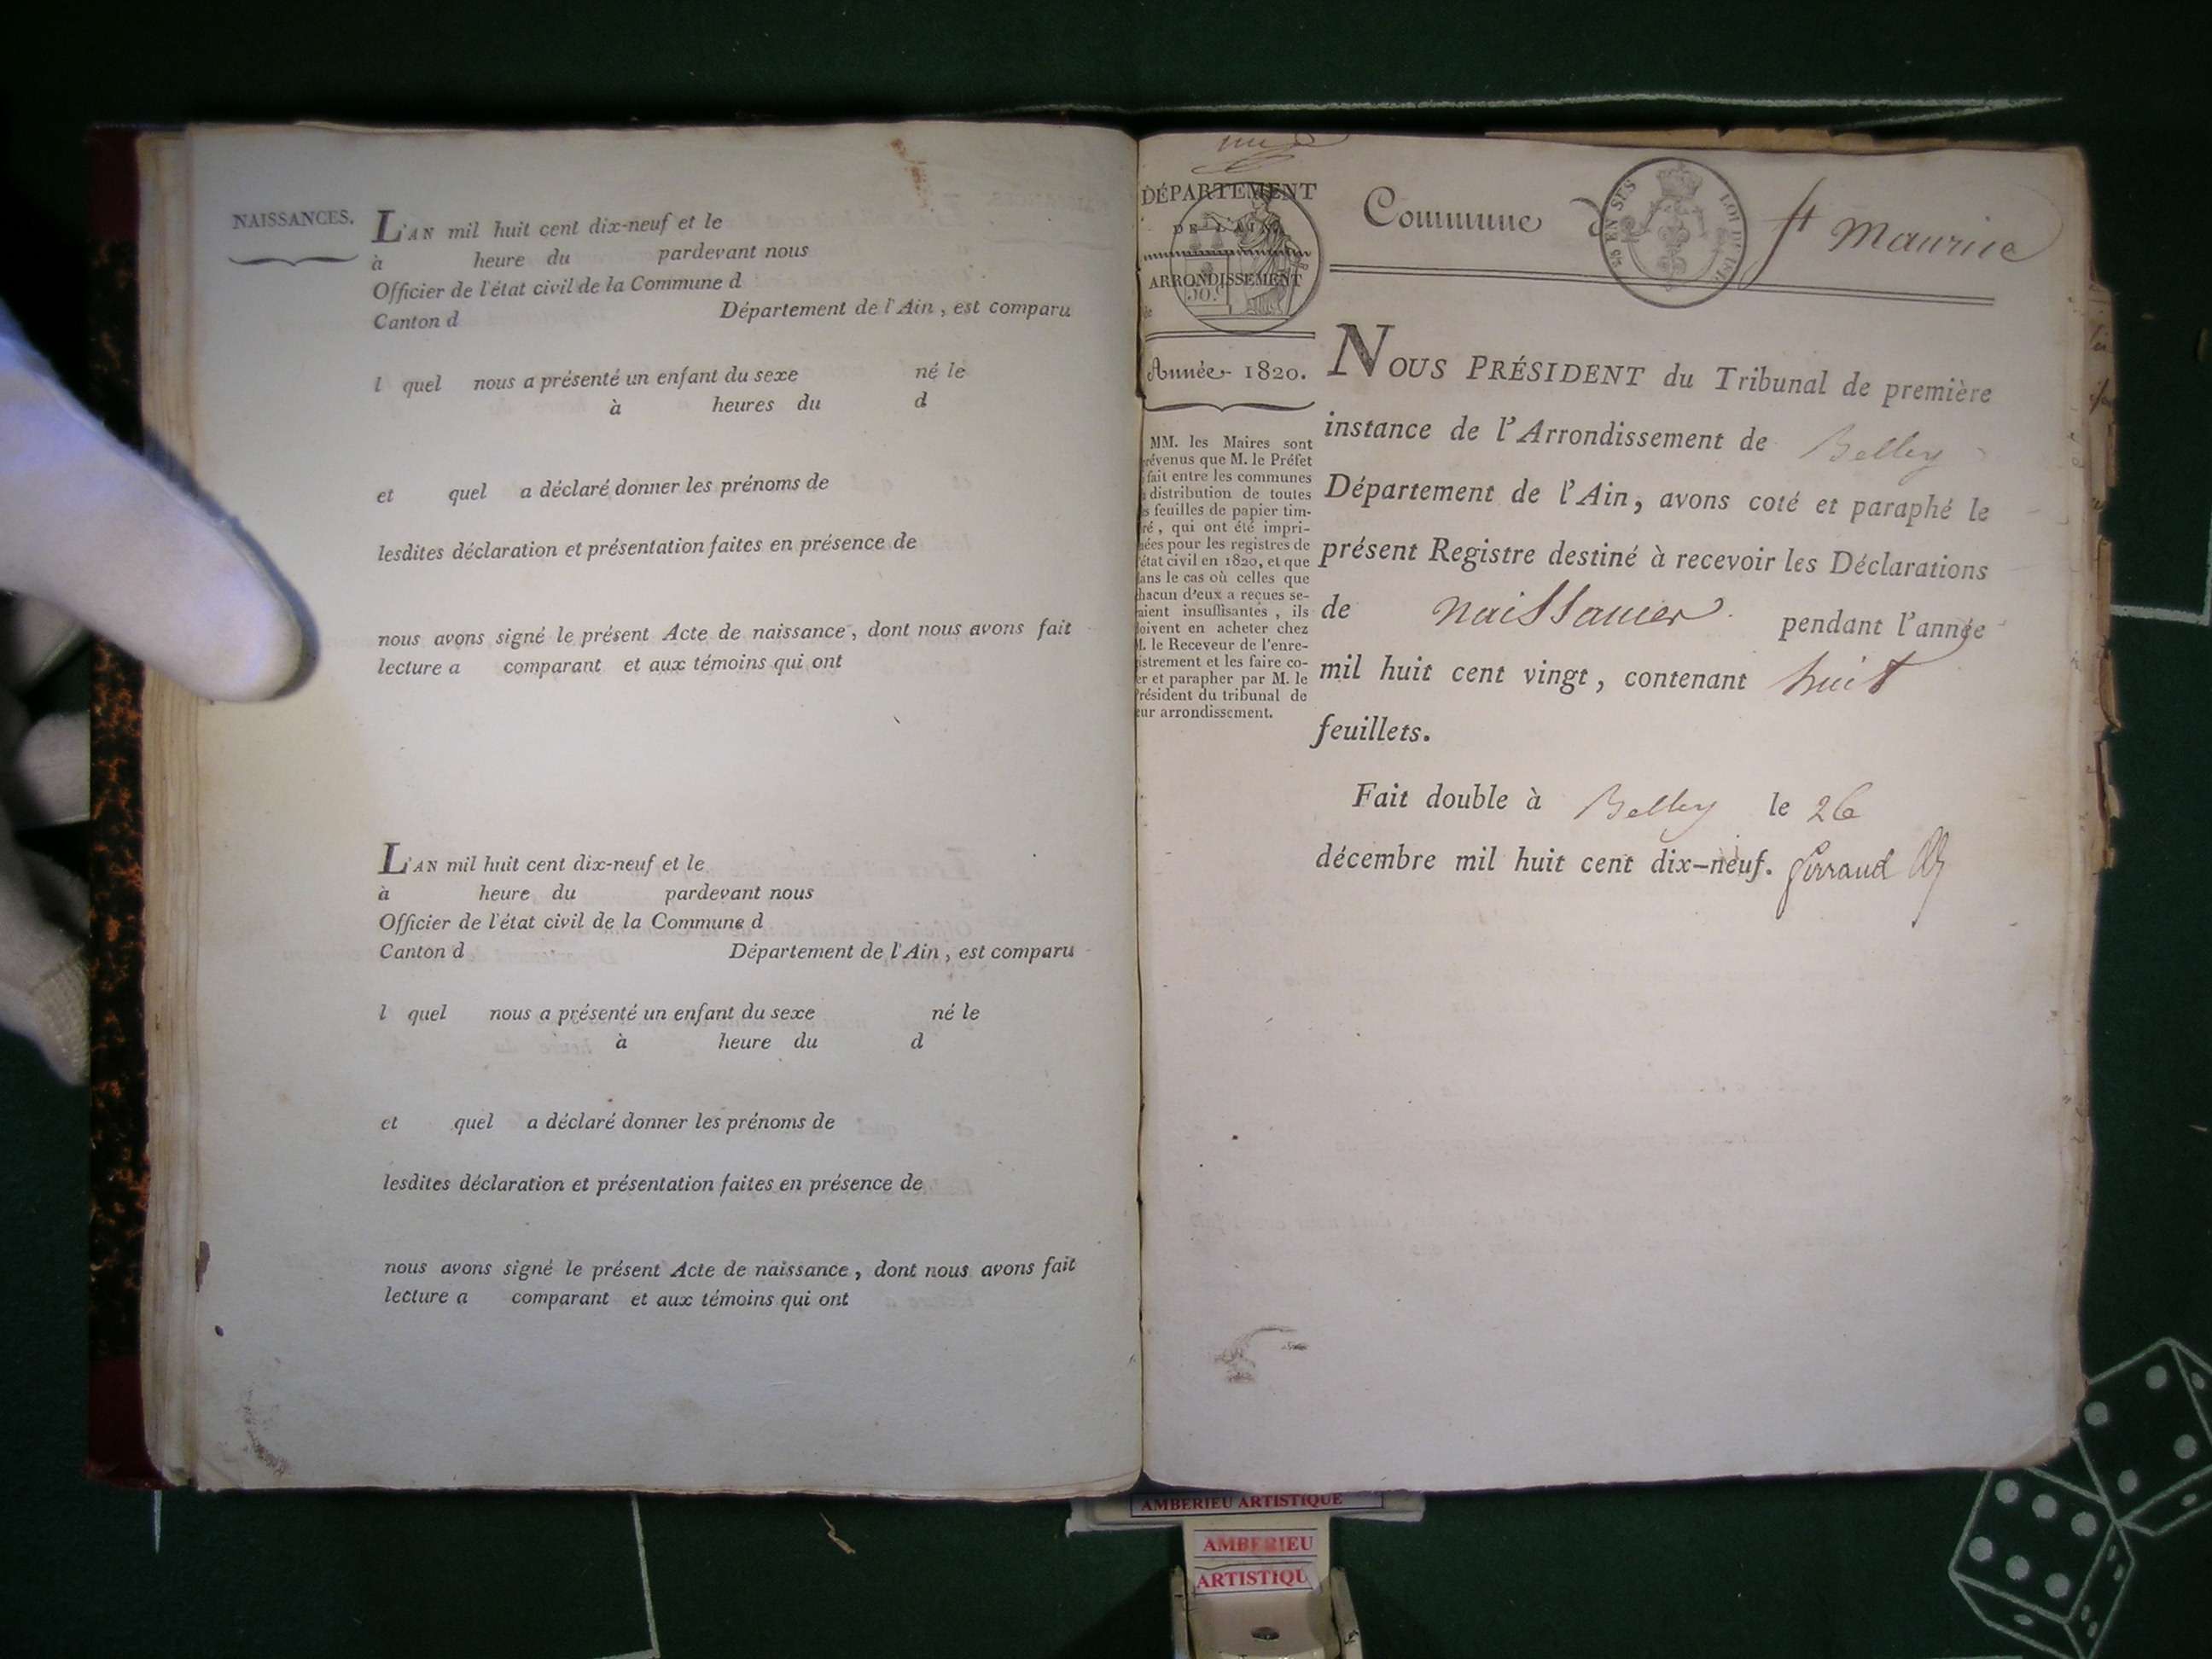 NAISSANCES.
L'AN mil huit cent dix-neuf et le
à heure du pardevant nous
Officier de l'état civil de la Commune d
Canton d Département de l'Ain, est comparu
l quel nous a présenté un enfant du sexe né le
à heures du d
et quel a déclaré donner les prénoms de
lesdites déclaration et présentation faites en présence de
nous avons signé le présent Acte de naissance, dont nous avons fait
lecture a comparant et aux témoins qui ont
L'AN mil huit cent dix-neuf et le
à heure du pardevant nous
Officier de l'état civil de la Commune d
Canton d Département de l'Ain, est comparu
l quel nous a présenté un enfant du sexe né le
à heure du d
et quel a déclaré donner les prénoms de
lesdites déclaration et présentation faites en présence de
nous avons signé le présent Acte de naissance, dont nous avons fait
lecture a comparant et aux témoins qui ont
DÉPARTEMENT
DE L'AIN.
ARRONDISSEMENT
Année 1820.
MM. les Maires sont
révenus que M. le Préfet
fait entre les communes
distribution de toutes
s feuilles de papier tim-
ré, qui ont été impri-
ées pour les registres de
état civil en 1820, et que
ans le cas où celles que
hacun d'eux a reçues se-
aient insuffisantes, ils
oivent en acheter chez
M. le Receveur de l'enre-
istrement et les faire co-
er et parapher par M. le
Président du tribunal de
eur arrondissement.
Commune d St Maurice
NOUS PRÉSIDENT du Tribunal de première
instance de l'Arrondissement de Belley
Département de l'Ain, avons coté et paraphé le
présent Registre destiné à recevoir les Déclarations
de naissances pendant l'année
mil huit cent vingt, contenant huit
feuillets.
Fait double à Belley le 26
décembre mil huit cent dix-neuf.
AMBERIEU ARTISTIQUE
AMBERIEU
ARTISTIQU